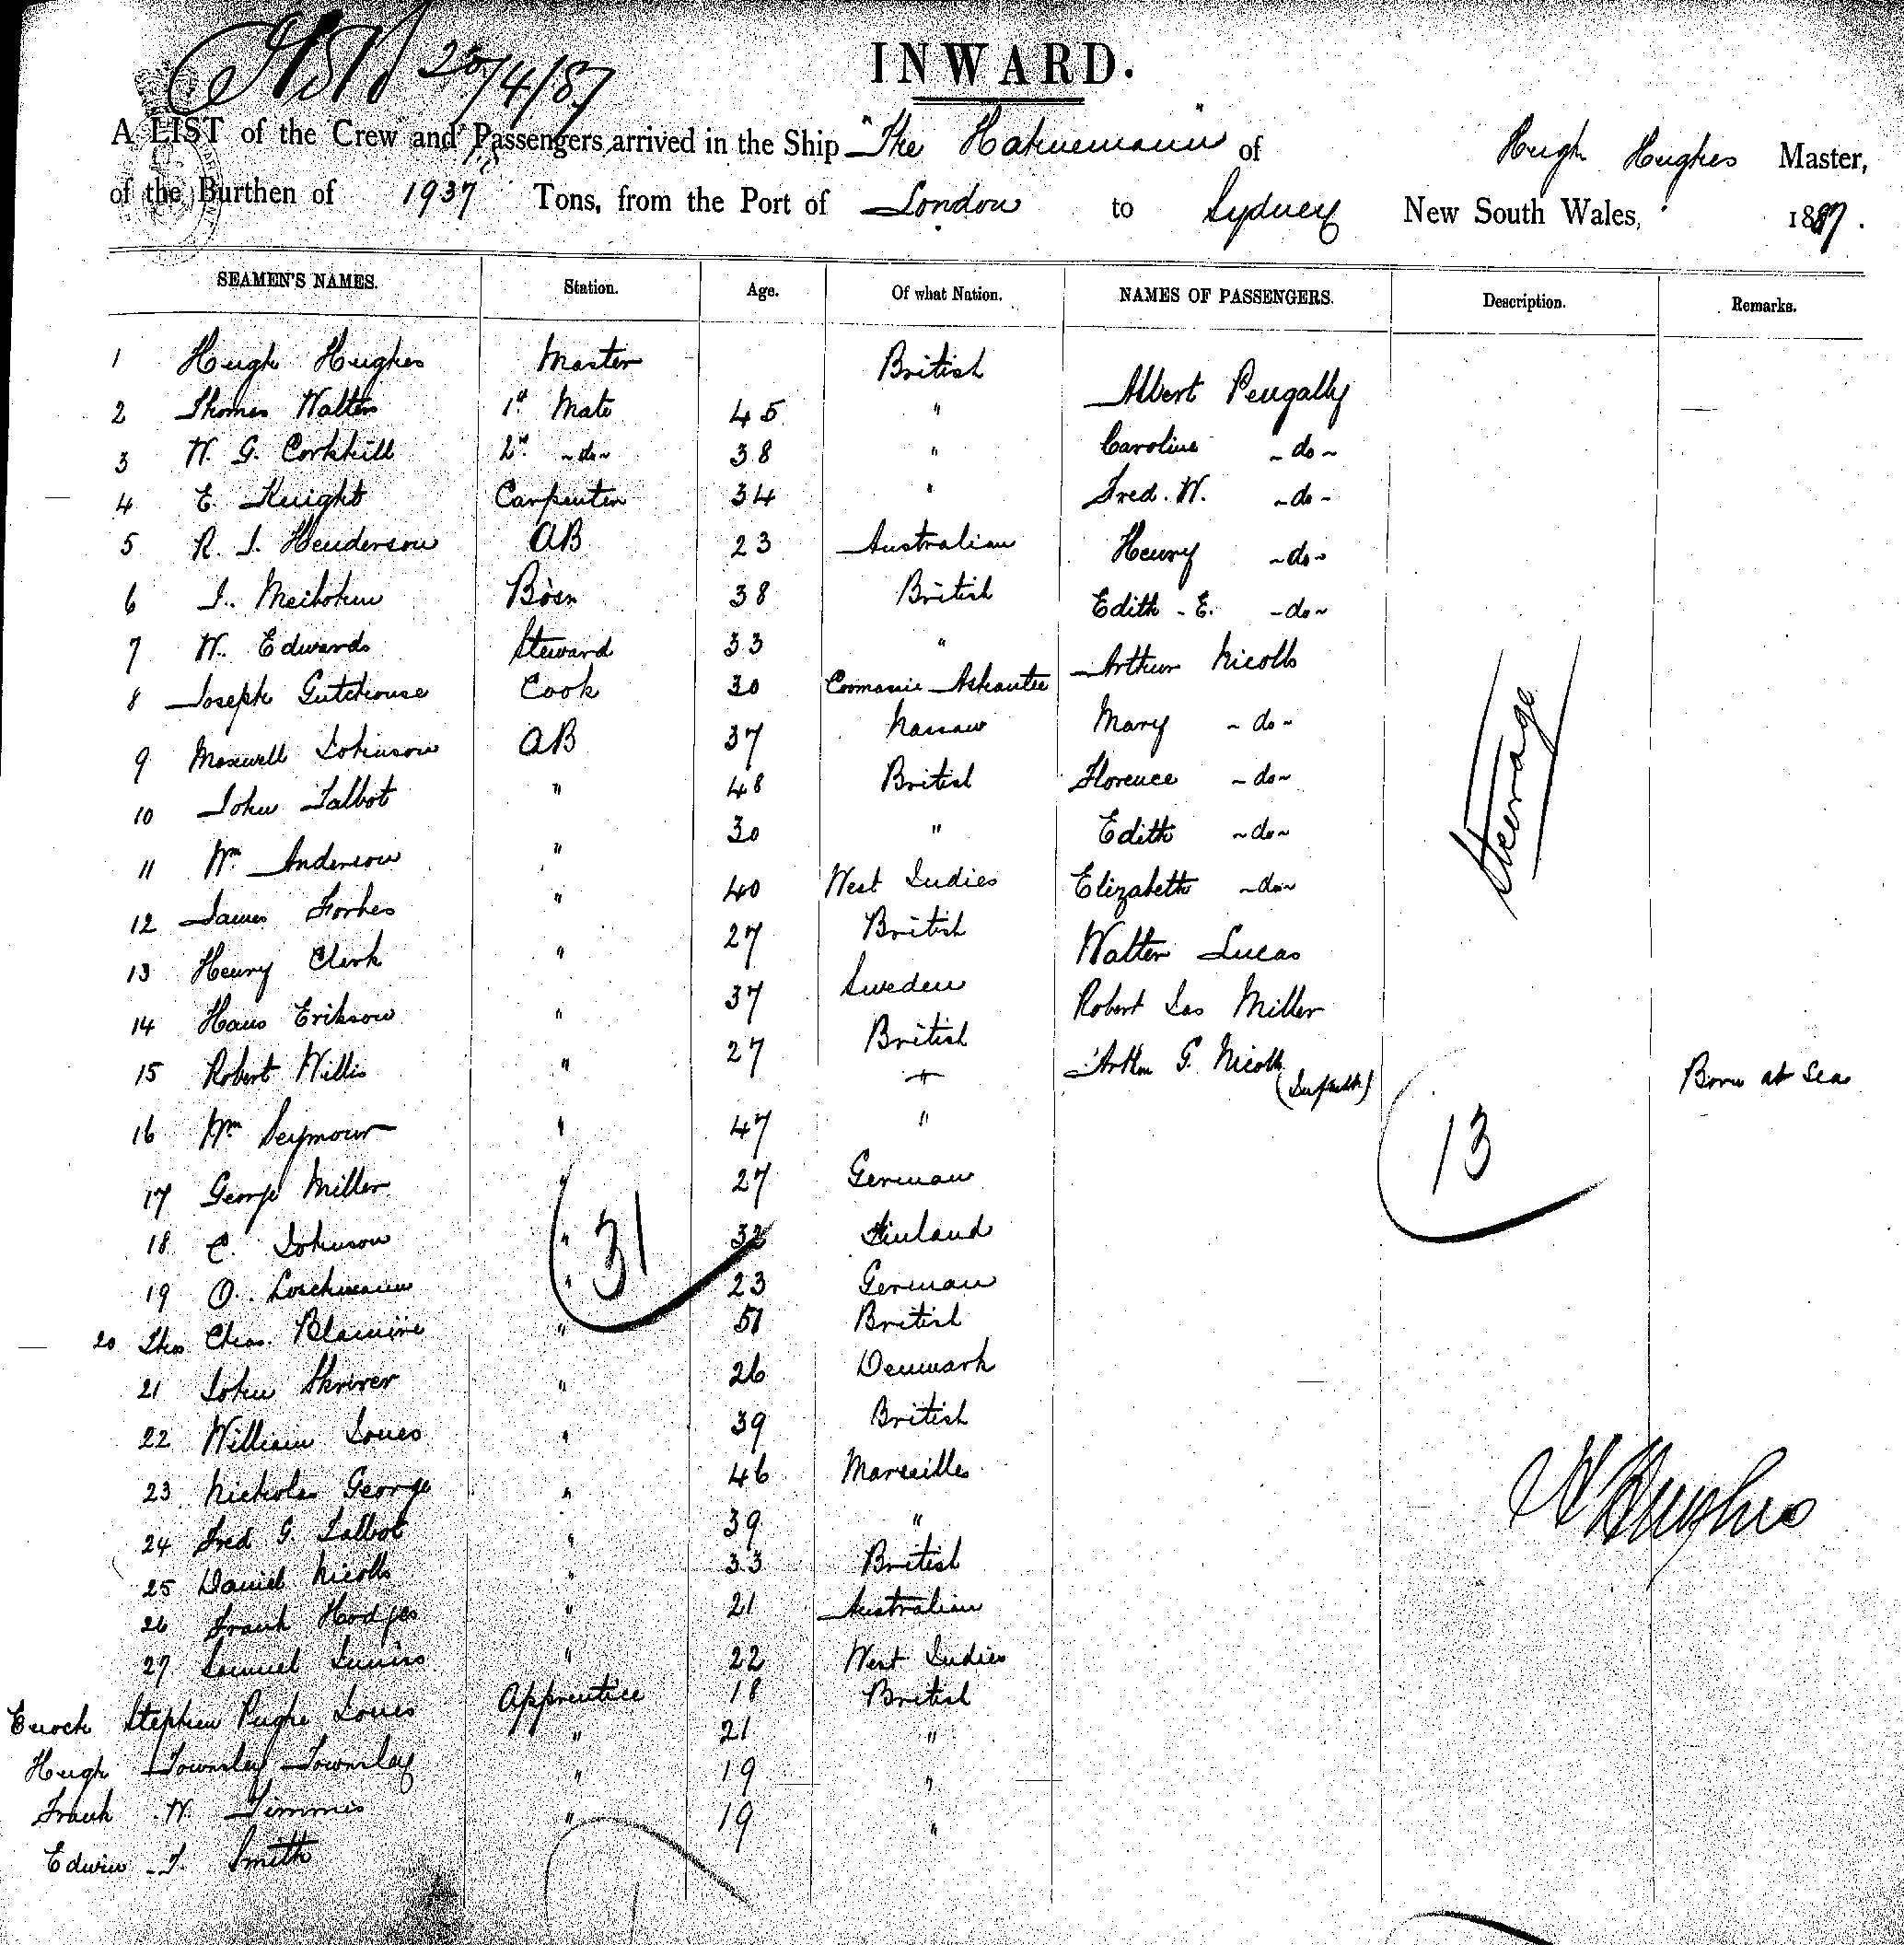 25/4/87
INWARD.
A LIST of the Crew and Passengers arrived in the Ship "The Hahnemann" of Hugh Hughes Master,
of the Burthen of 1937 Tons, from the Port of London to Sydney New South Wales, 1887.
SEAMEN'S NAMES. Station. Age. Of what Nation. NAMES OF PASSENGERS. Description. Remarks.
1 Hugh Hughes Master British Albert Pengally
2 Thomas Walters 1st Mate 45 " Caroline ~do~
3 W. G. Corkhill 2nd ~do~ 38 " Fred. W. ~do~
4 E. Knight Carpenter 34 " Henry ~do~
5 R. J. Henderson AB 23 Australian Edith E. ~do~
6 J. Bosn 38 British Arthur Nicolls
7 W. Edwards Steward 33 " Mary ~do~
8 Joseph Gutchouse Cook 30 Coomassie Ashantee Florence ~do~
9 Maxwell Johnson AB 37 Nassau Edith ~do~
10 John Talbot " 48 British Elizabeth ~do~
11 Wm Anderson " 30 " Walter Lucas
12 James Forbes " 40 West Indies Robert Jas Miller
13 Henry Clark " 27 British Arthur G. Nicolls (Infant) Born at Sea
14 Hans Erikson " 37 Sweden
15 Robert Willis " 27 British
16 Wm Seymour " 47 "
17 George Miller " 27 German
18 C. Johnson " 32 Finland
19 O. Loschmann " 23 German
20 Thos Chas. Blamire " 51 British
21 John Skriver " 26 Denmark
22 William Jones " 39 British
23 Nicholas George " 46 Marseilles
24 Fred G. Talbot " 39 "
25 Daniel Nicolls " 33 British
26 Frank Hodges " 21 Australian
27 Samuel " 22 West Indies
Enoch Stephen Pughe Jones Apprentice 18 British
Hugh Townsley Townsley " 21 "
Frank W. Timmis " 19 "
Edwin T. Smith " 19 "
Steerage
13
31
H Hughes